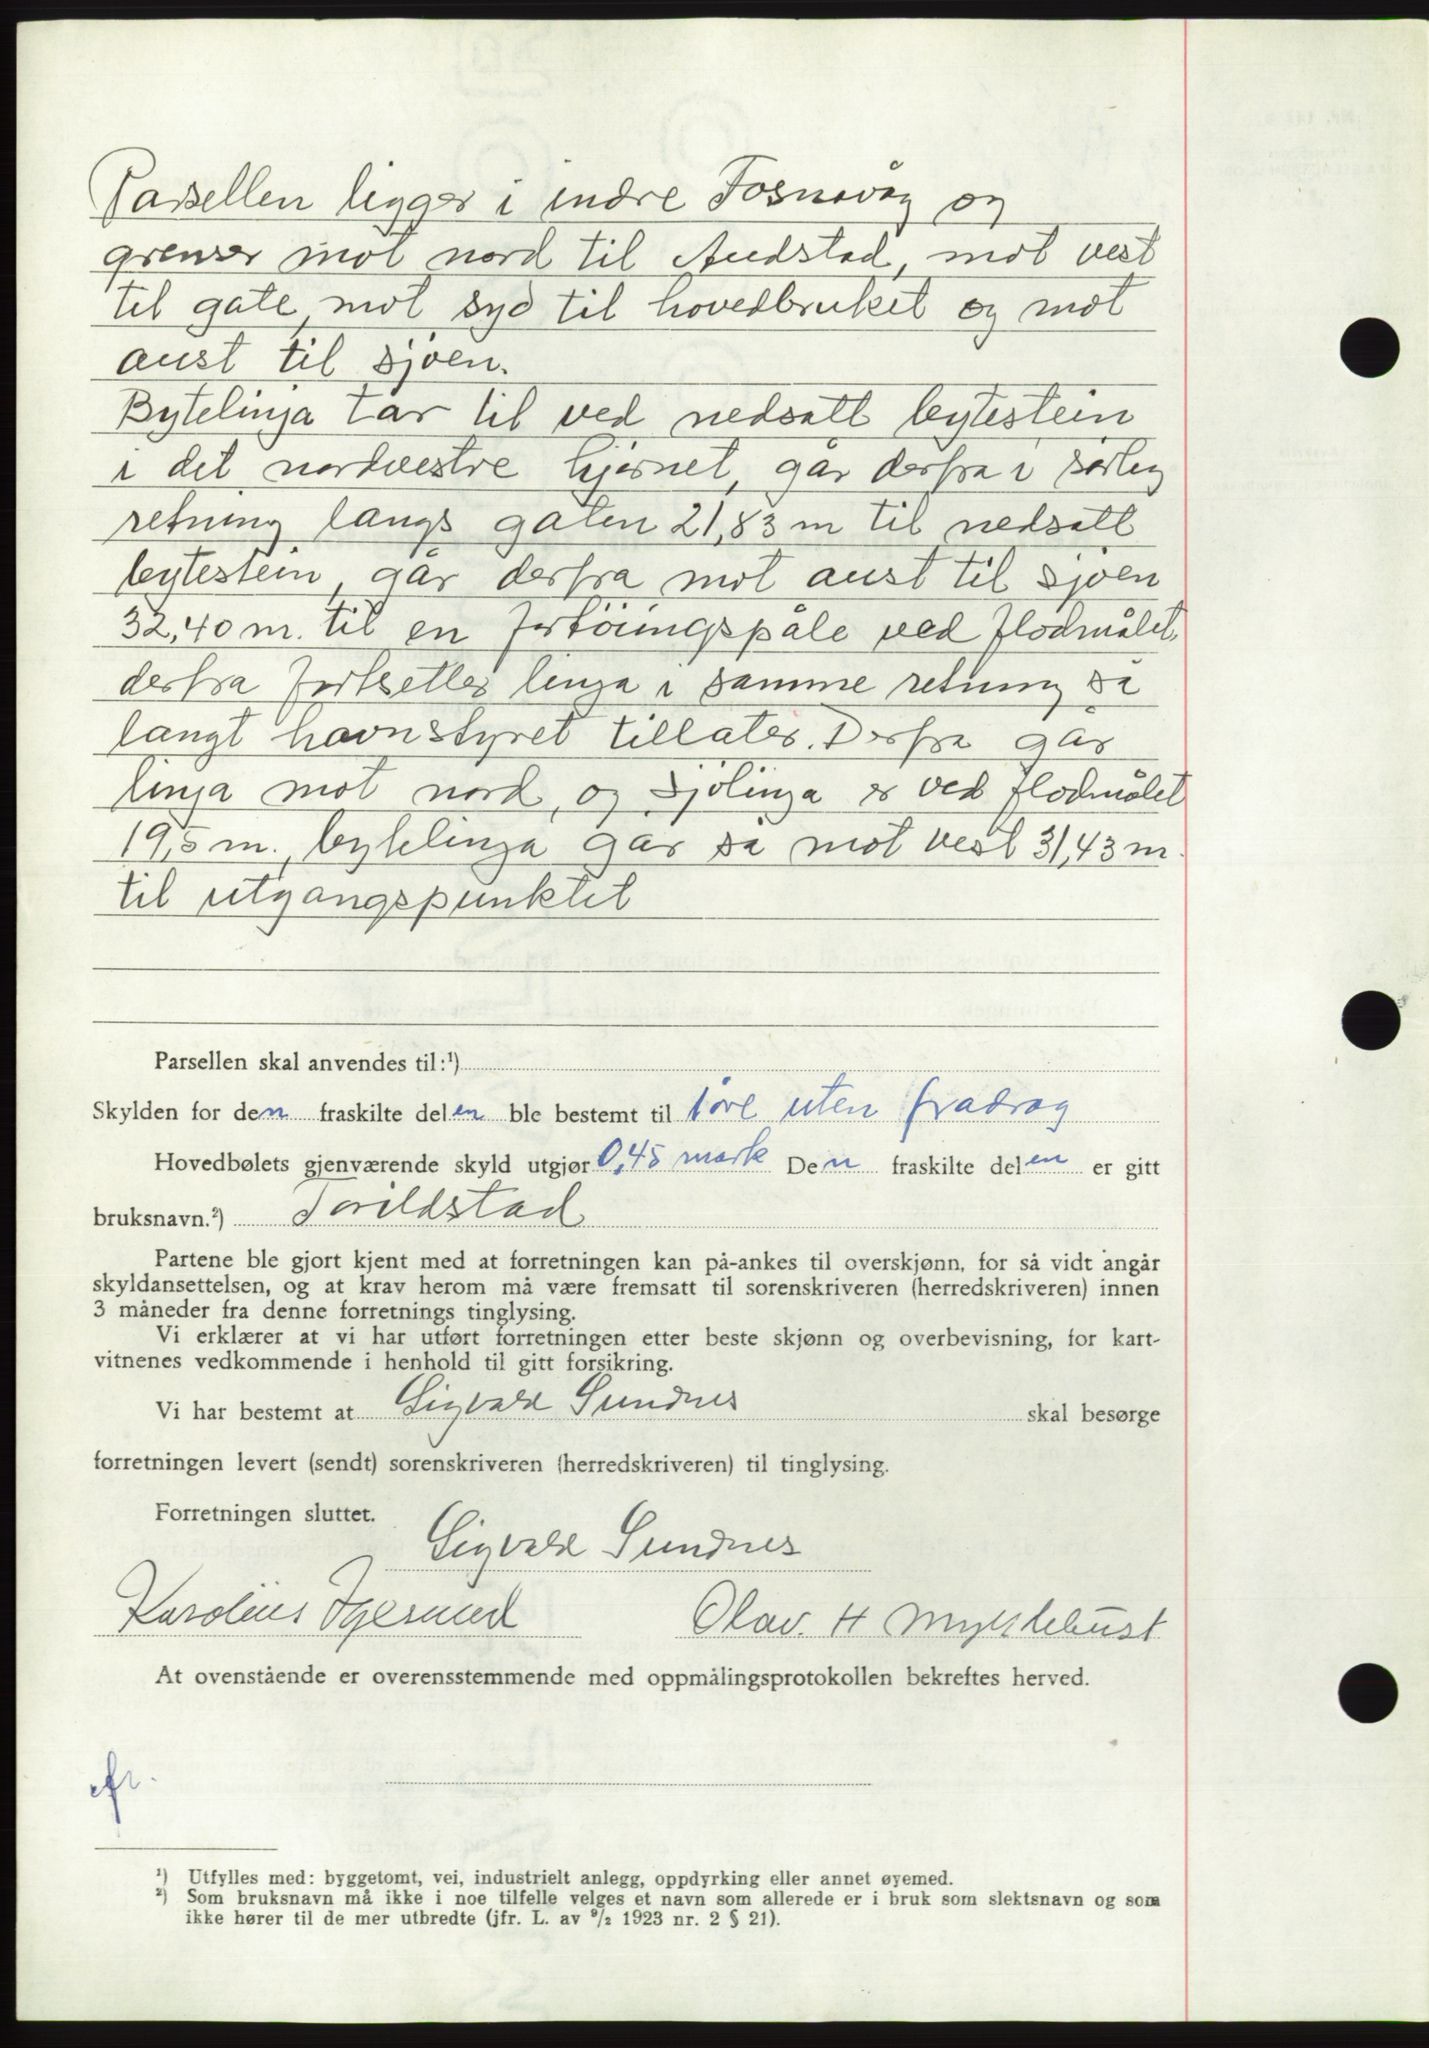 Parsellen ligger i indre Fosnavåg og
grenser mot nord til Audstad, mot vest
til gate, mot syd til hovedbruket og mot
aust til sjøen.
Bytelinja tar til ved nedsatt bytestein
i det nordvestre hjørnet, går derfra i sørleg
retning langs gaten 21,83 m til nedsatt
bytestein, går derfra mot aust til sjøen
32,40 m. til en fortöiingspåle ved flodmålet,
derfra fortsetter linja i samme retning så
langt havnstyret tillater. Derfra går
linja mot nord, og sjölinja er ved flodmålet
19,5 m., bytelinja går så mot vest 31,43 m.
til utgangspunktet
Parsellen skal anvendes til:¹)
Skylden for den fraskilte delen ble bestemt til 1 øre uten fradrag
Hovedbølets gjenværende skyld utgjør 0,45 mark Den fraskilte delen er gitt
bruksnavn.²) Torildstad
Partene ble gjort kjent med at forretningen kan på-ankes til overskjønn, for så vidt angår
skyldansettelsen, og at krav herom må være fremsatt til sorenskriveren (herredskriveren) innen
3 måneder fra denne forretnings tinglysing.
Vi erklærer at vi har utført forretningen etter beste skjønn og overbevisning, for kart-
vitnenes vedkommende i henhold til gitt forsikring.
Vi har bestemt at Sigvald Sundnes skal besørge
forretningen levert (sendt) sorenskriveren (herredskriveren) til tinglysing.
Forretningen sluttet.
Sigvald Sundnes
Karolius Igesund Olav. H Myklebust
At ovenstående er overensstemmende med oppmålingsprotokollen bekreftes herved.
¹) Utfylles med: byggetomt, vei, industrielt anlegg, oppdyrking eller annet øyemed.
²) Som bruksnavn må ikke i noe tilfelle velges et navn som allerede er i bruk som slektsnavn og som
ikke hører til de mer utbredte (jfr. L. av ⁹/₂ 1923 nr. 2 § 21).